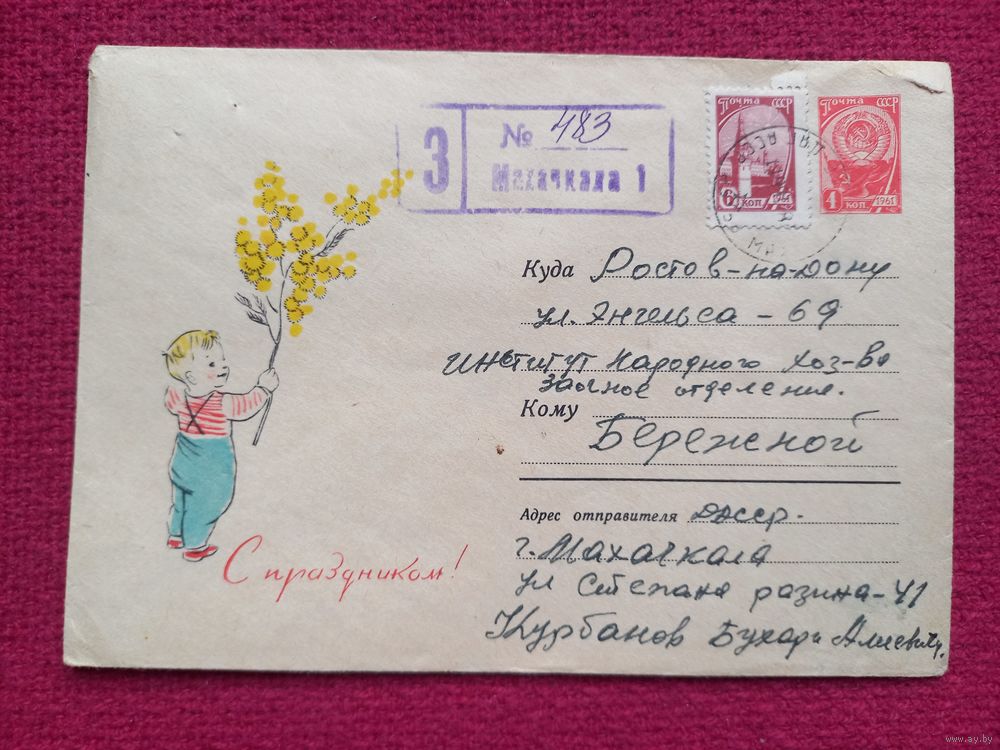 З
№ 483
Махачкала 1
Почта СССР
6 коп 1961
Почта СССР
4 коп 1961
Куда Ростов-на-Дону
ул. Энгельса - 69
институт Народного хоз-ва
заочное отделение.
Кому
Бережной
Адрес отправителя ДАССР.
г. Махачкала
ул Степана разина-41
Курбанов Бухари Алиевич.
С праздником!
www.ay.by